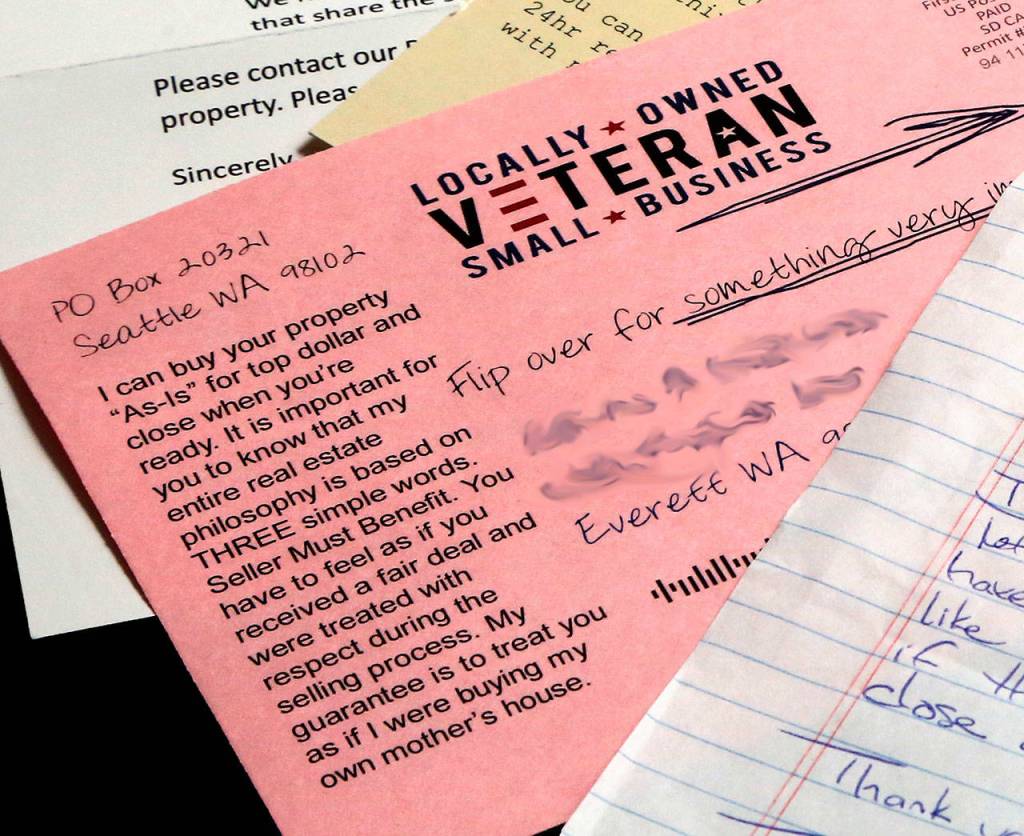 that share the
Please contact our
property. Pleas
Sincerely
ou can
24hr re
with
US Pos
PAID
SD CA
Permit #
94 11
LOCALLY OWNED
VETERAN
SMALL BUSINESS
PO Box 20321
Seattle WA 98102
I can buy your property
“As-Is” for top dollar and
close when you're
ready. It is important for
you to know that my
entire real estate
philosophy is based on
THREE simple words.
Seller Must Benefit. You
have to feel as if you
received a fair deal and
were treated with
respect during the
selling process. My
guarantee is to treat you
as if I were buying my
own mother's house.
Flip over for something very im
Everett WA
have
like
if
close
Thank